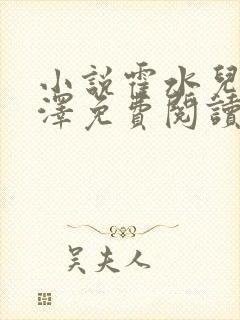 小說霍水兒
澤免費閱讀
吴夫人